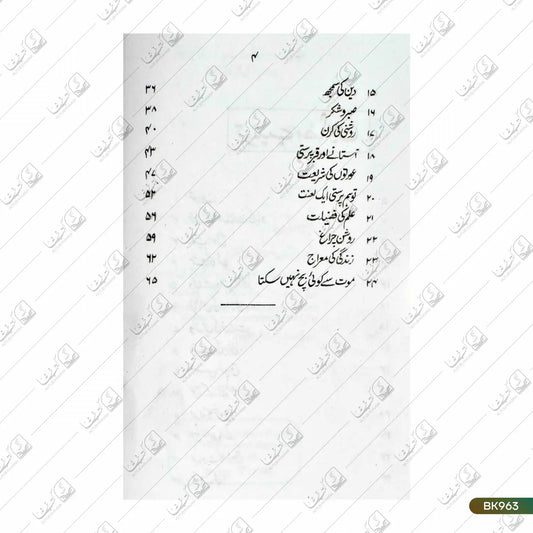 ۴
۱۵ دین کی سمجھ ۳۶
۱۶ صبر و شکر ۳۸
۱۷ روشنی کی کرن ۴۰
۱۸ آستانے اور قبر پرستی ۴۳
۱۹ عورتوں کی شریعت ۴۷
۲۰ توہم پرستی ایک لعنت ۵۳
۲۱ علم کی فضیلت ۵۶
۲۲ روشن چراغ ۵۹
۲۳ زندگی کی معراج ۶۲
۲۴ موت سے کوئی بچ نہیں سکتا ۶۵
BK963